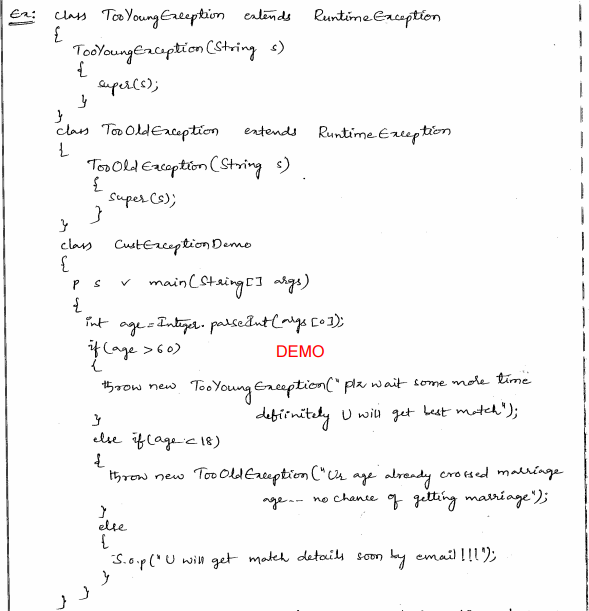 Ex: class TooYoungException extends RuntimeException
{
TooYoungException(String s)
{
super(s);
}
}
class TooOldException extends RuntimeException
{
TooOldException(String s)
{
super(s);
}
}
class CustExceptionDemo
{
p s v main(String[] args)
{
int age=Integer.parseInt(args[0]);
if(age >60)
DEMO
{
throw new TooYoungException("plz wait some more time
definitely U will get best match");
}
else if(age<18)
{
throw new TooOldException("Ur age already crossed marriage
age-- no chance of getting marriage");
}
else
{
S.o.p("U will get match details soon by email!!!");
}
}
}